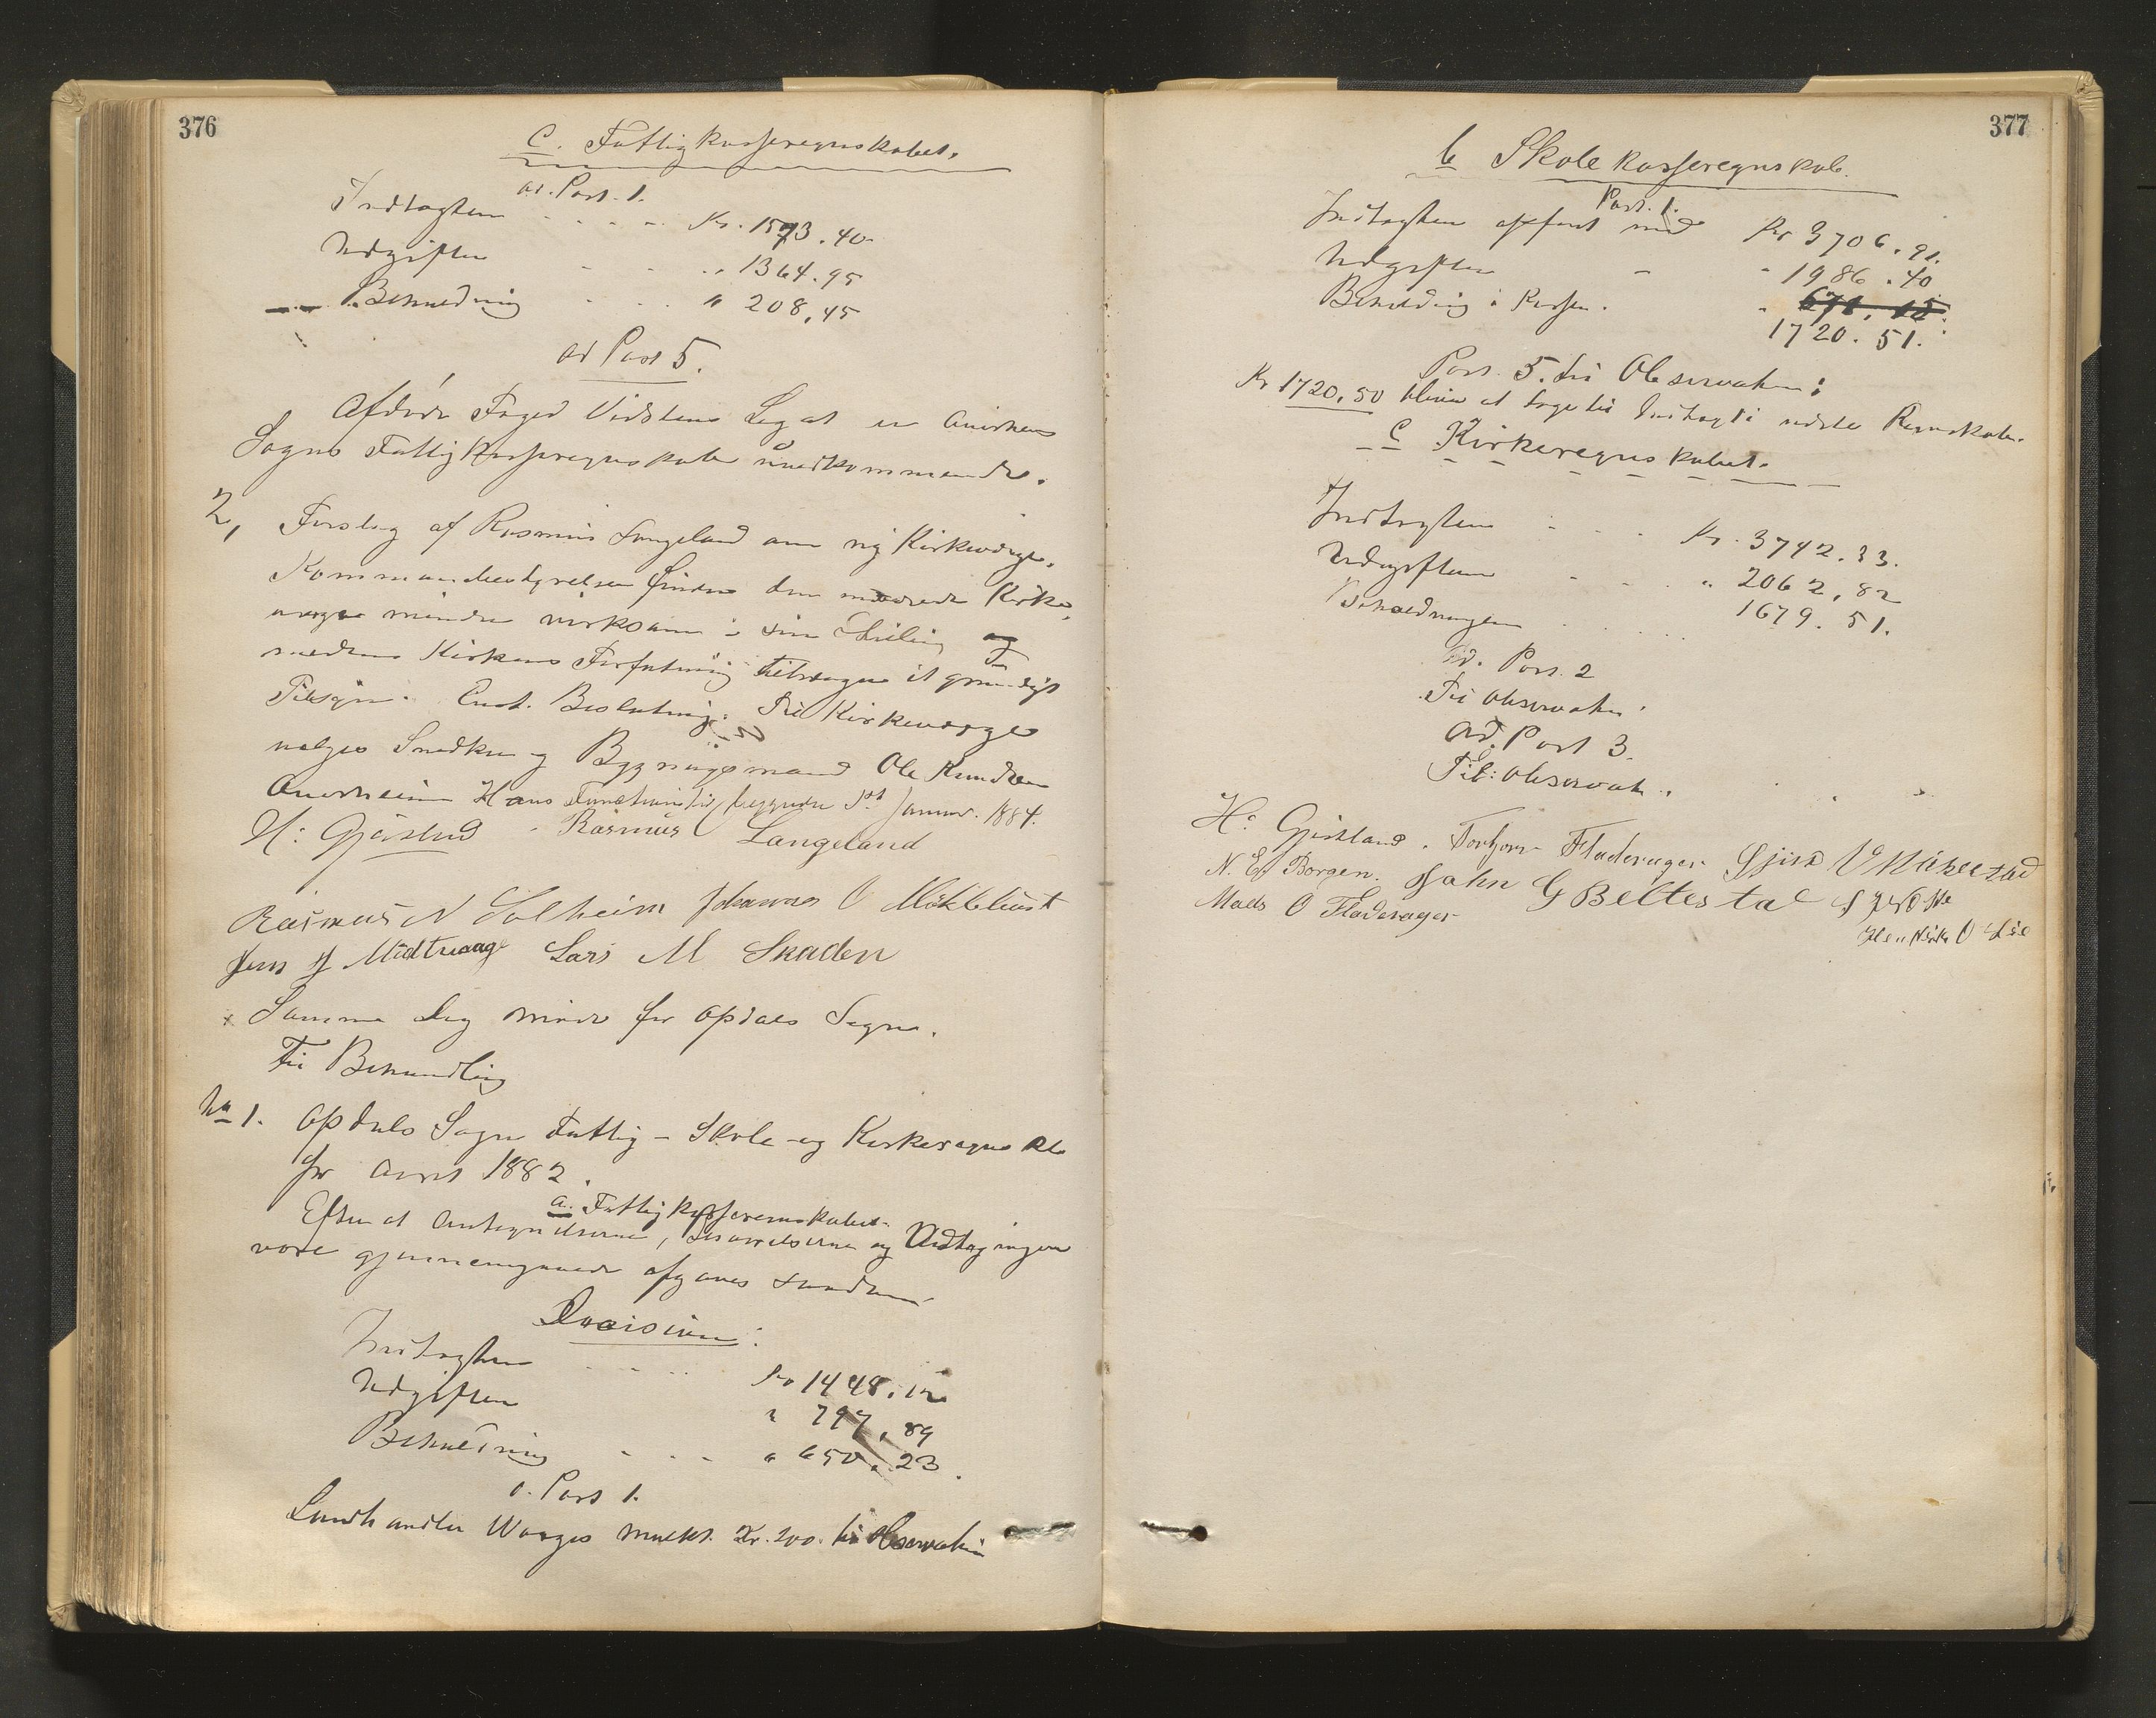 376
C. Fattigkasseregnskabet.
ad. Post. 1.
Indtægten - - - - Kr. 1573.40
Udgiften - - - „ 1364.95
Beholdning - - - „ 208,45
ad Post 5.
Afdøde Foged Vidstens Legat er Aurskens
Sogns Fattigkasseregnskab uvedkommende.
2, Forslag af Rasmus Langeland om ny Kirkeværge.
Kommunebestyrelsen finder den Kirke-
værge mindre virksom i sin Stilling og
medens Kirkens Forfatning tiltrænger et grundigt
Tilsyn. Enst. Beslutning: Til Kirkeværge
vælges Snedker og Bygningsmand Ole Knudsen
Hans Functionstid begynder 1st Januar. 1884.
H: Gjärlud Rasmus Langeland
Rasmus N Solheim Johannes O Möklebust
Jens J Midtvaage Lars M Skaden
x Samme Dag Møde for Opdals Sogn.
Til Behandling
No 1. Opdals Sogns Fattig- Skole- og Kirkeregnskab
for Aaret 1882.
a. Fattigkasseregnskabet.
Efter at Antegnelserne, Besvarelserne og Udtagningen
vare gjennemgaaede afgaves saadan
Decision:
Indtægten - - - - Kr 1448.12
Udgiften „ 797,89
Beholdning - - - „ 650.23.
a. Post 1.
Landhandler Waages Mulkt. Kr. 200. til Observation
377
b Skolekasseregnskab.
Post. 1.
Indtægten opført med Kr 3706.91.
Udgiften - - 1986.40
Beholdning i Kassen. - 671.12.
1720.51.
Post. 5. til Observation:
Kr 1720,50 bliver at tage til Indtægt i næste Regnskab.
C Kirkeregnskabet.
Indtægten - - - - Kr. 3742.33.
Udgiften - - - „ 2062,82
Beholdningen . . . . . 1679.51.
ad. Post. 2
Til Observation.
Ad. Post 3.
Til: Observat..
H. Gjärland. Torbjørn Fladerager
N. E. Borgen. John G Beltestad
Mads O Fladerager
Henrik O Lie